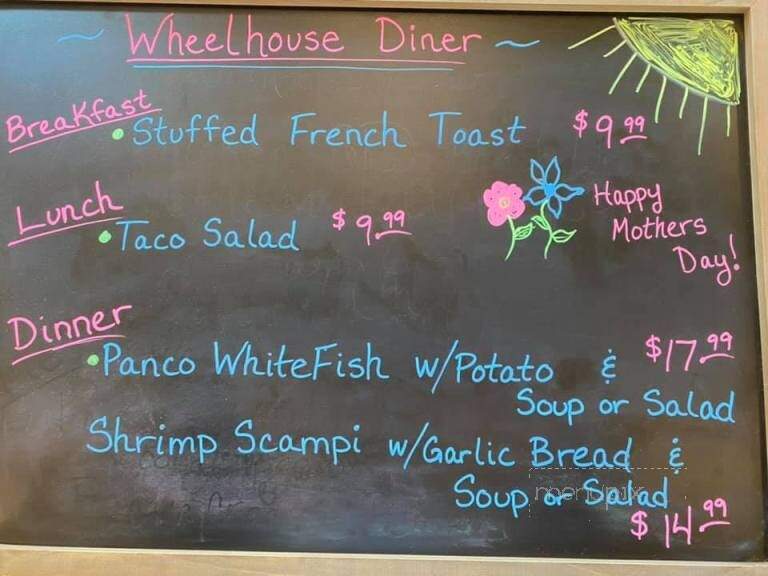 ~ Wheelhouse Diner ~
Breakfast
• Stuffed French Toast $9.99
Lunch
• Taco Salad $9.99
Happy
Mothers
Day!
Dinner
• Panco WhiteFish w/Potato & $17.99
Soup or Salad
Shrimp Scampi w/Garlic Bread &
Soup or Salad
menupix
$14.99